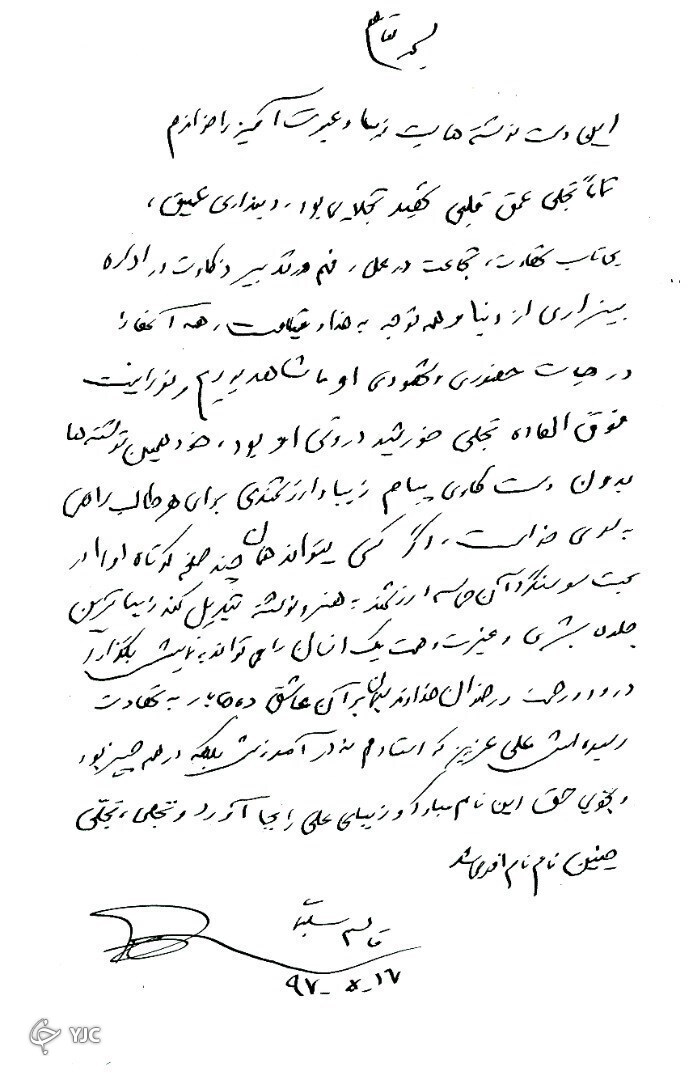 بسمه تعالی
این دست نوشته هایت زیبا و عبرت آمیز را خواندم
تماماً تجلی عمق قلبی شهید تجلایی بود، دینداری عمیق،
بی‌تاب شهادت، شجاعت در عمل، فهم و تدبیر ذکاوت در اداره
بیزاری از دنیا و همه توجه به خدا و قیامت، همه آنها را
در حیات حضوری و شهودی او ما شاهد بودیم، نورانیت
فوق العاده تجلی خورشید در روی او بود، خود همین نوشته‌ها
بدون دست کاری پیام زیبا و ارزشمندی برای هر طالب راهی
به سوی خداست، اگر کسی بتواند همان چند صفحه کوتاه او را در
سوسنگرد آن حماسه ارزشمند به هنر و نوشته تبدیل کند زیباترین
جلوه بشری و غیرت و همت یک انسان را می تواند به نمایش بگذارد
درود و رحمت و رضوان خداوند بر آن عاشق به شهادت
رسیده علی عزیز که استادم نه در آموزش بلکه در همه چیز بود
و بخوبی حق این نام مبارک و زیبای علی را بجا آورد و تجلی، تجلّی
چنین نام نام آوری شد
قاسم سلیمانی
۹۷-۸-۱۶
YJC